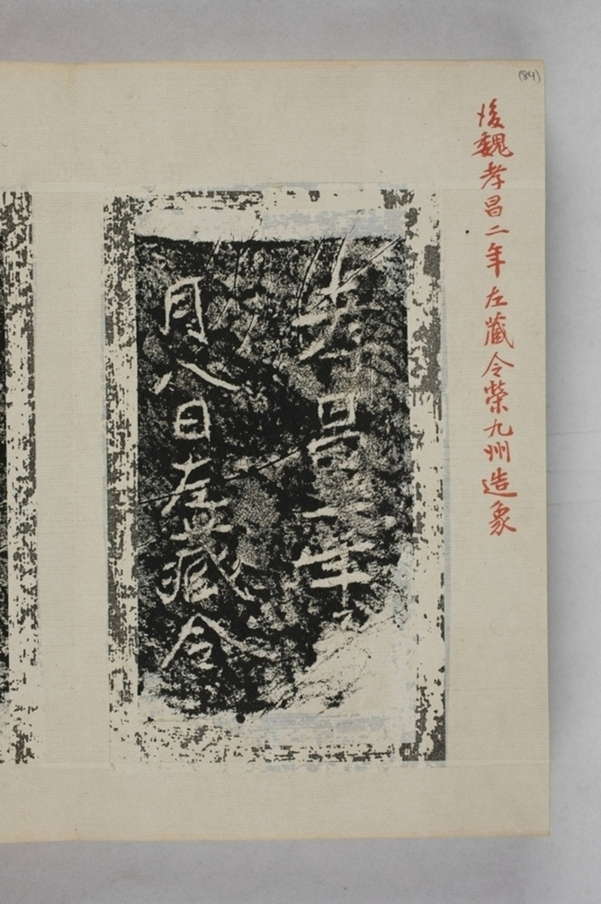 (84)
後魏孝昌二年左藏令榮九州造象
孝昌二年
月八日左藏令